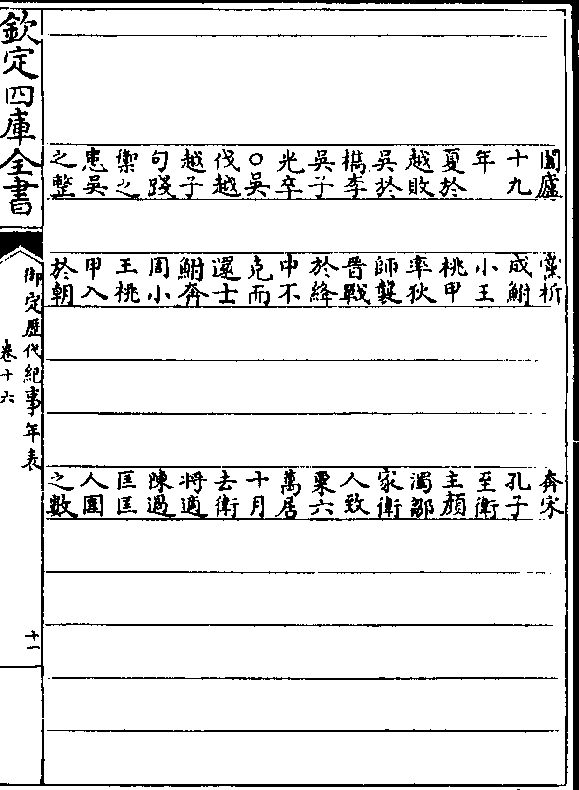 闔廬
十九
年
夏於
越敗
吳於
檇李
吳子
光卒
○吳
伐越
越子
句踐
禦之
患吳
之整
黨析
成鮒
小王
桃甲
率狄
師襲
晉戰
於絳
中不
克而
還士
鮒奔
周小
王桃
甲入
於朝
奔宋
孔子
至衛
主顔
濁鄒
家衛
人致
粟六
萬居
十月
去衛
將適
陳過
匡匡
人圍
之數
欽定四庫全書
御定歷代紀事年表
卷十六
十一